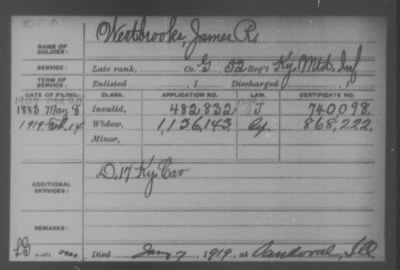 Westbrooke, James R.
NAME OF SOLDIER:
SERVICE: Late rank, Co. G, 52 Reg't Ky. Mtd. Inf
TERM OF SERVICE: Enlisted , 1 Discharged , 1
DATE OF FILING. CLASS. APPLICATION NO. LAW. CERTIFICATE NO.
1883 May 8 Invalid, 482832 J 740098.
1919 Feb. 14 Widow, 1,136,143. 868,222.
Minor,
ADDITIONAL SERVICES: D, 17 Ky. Cav
REMARKS:
Died Jany 7, 1919, at Sandoval, Ill